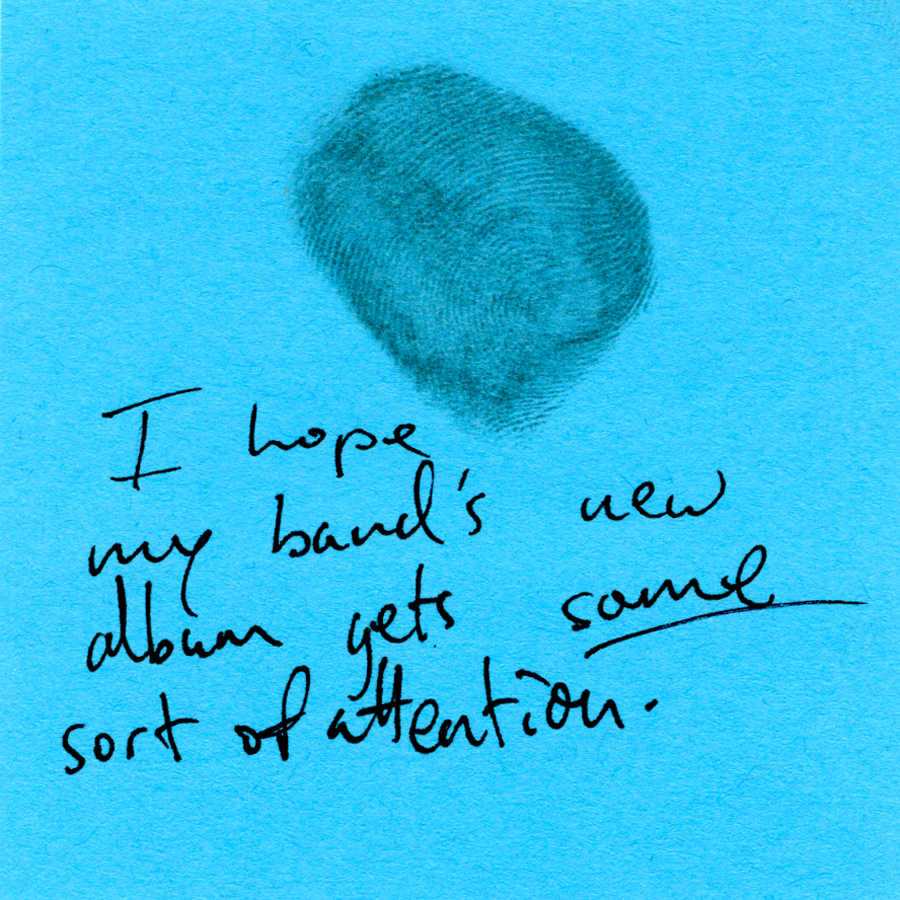 I hope
my band's new
album gets some
sort of attention.